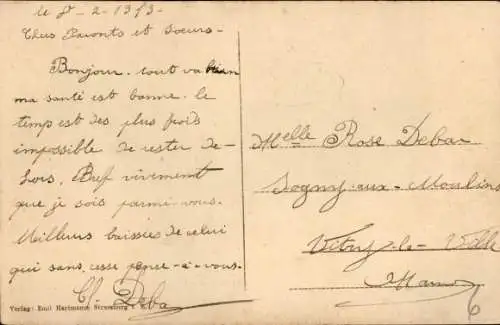 le 8-2-1913-
Chers Parents et Soeurs-
Bonjour. tout va bien
ma santé est bonne. le
temps est des plus froids
impossible de rester de-
hors. Bref vivement
que je sois parmi-vous.
Meilleurs baisers de celui
qui sans cesse pense-à-vous.
Cl. Deba
Verlag: Emil Hartmann Strassburg i.
Melle Rose Debar
Sogny-aux-Moulins
Vitry-la-Ville
Marne
6